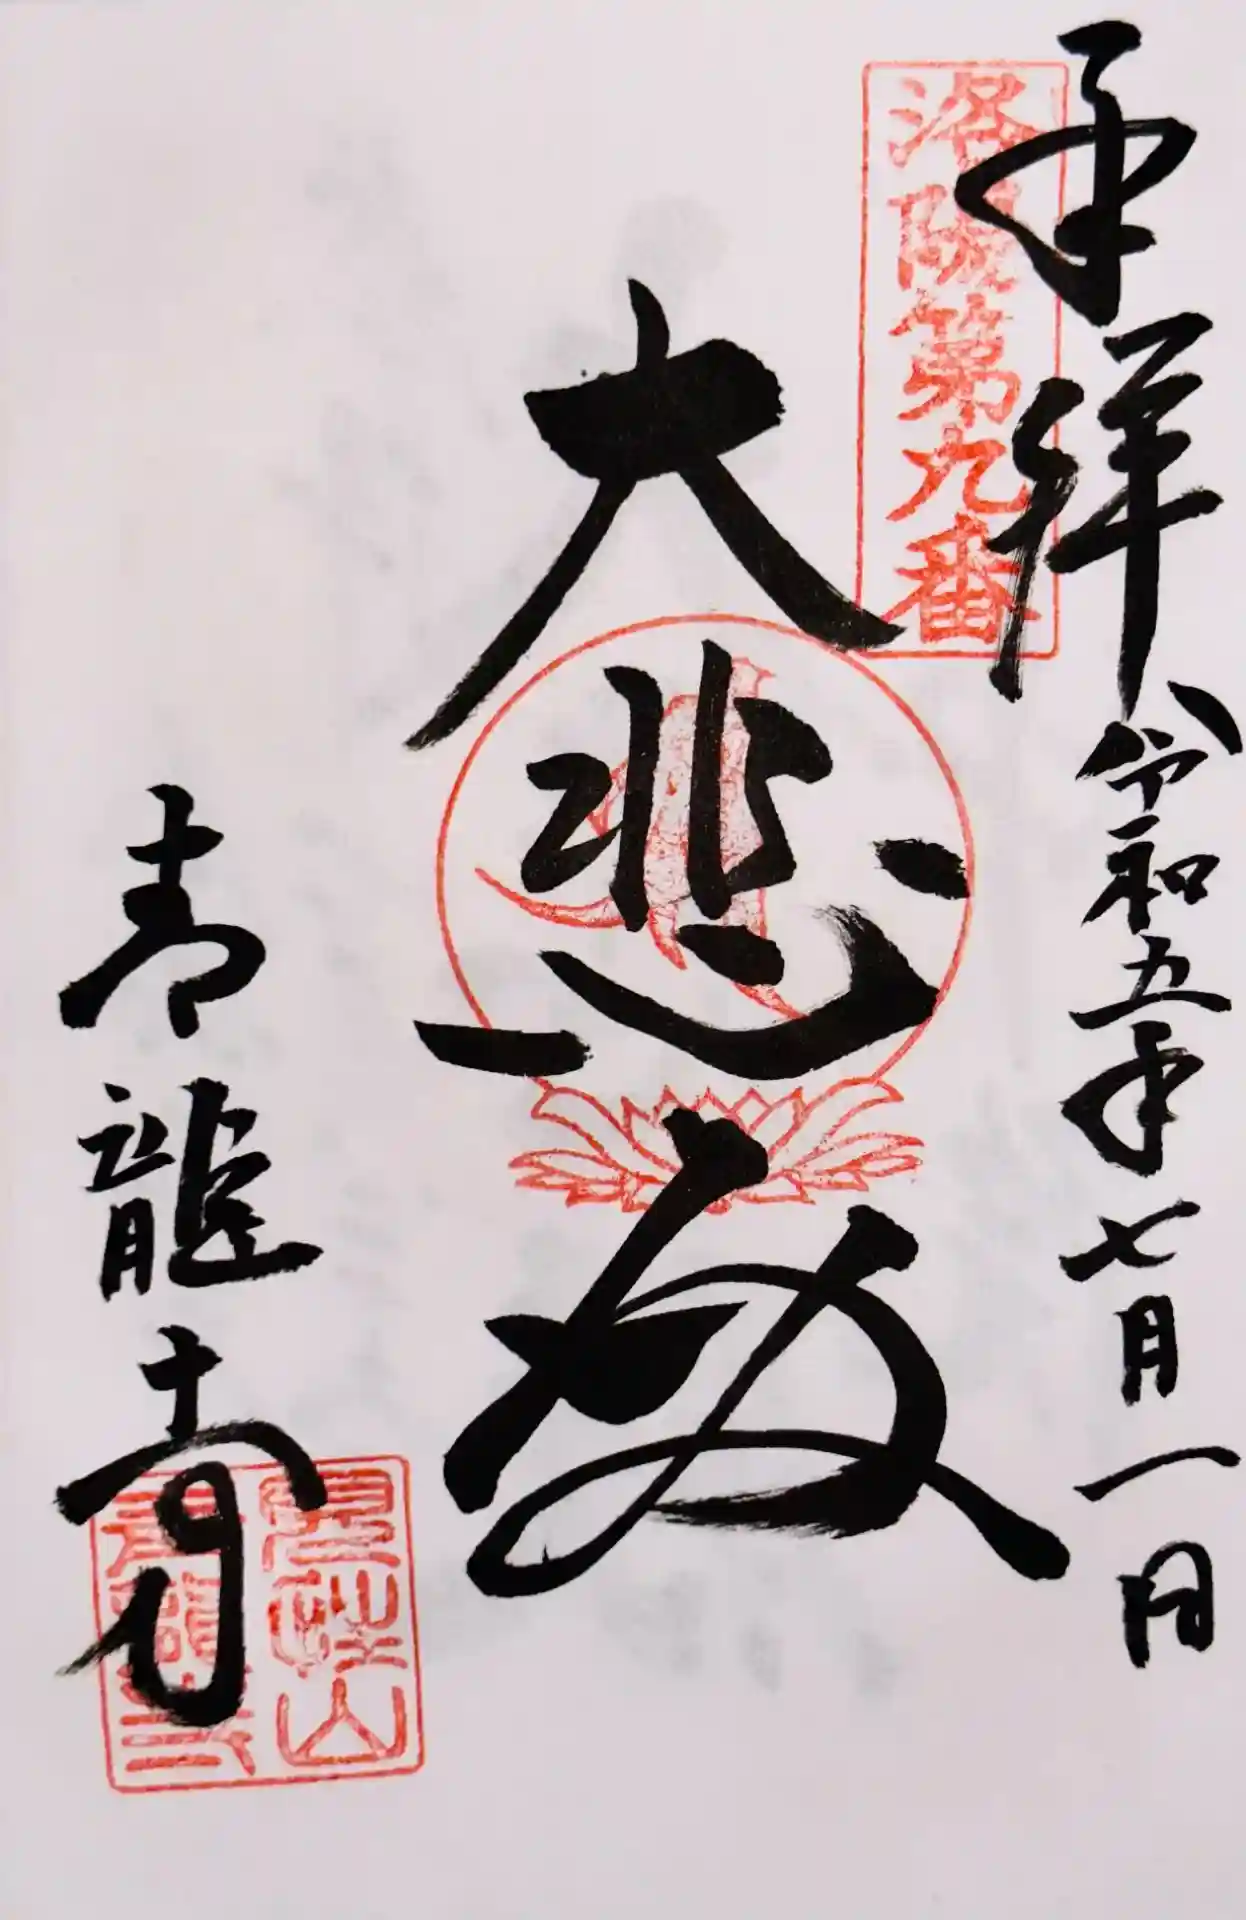 奉拝
令和五年七月一日
洛陽第九番
大悲殿
青龍寺
青龍寺